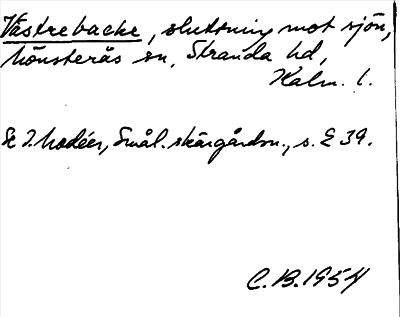 Västrebacke, sluttning mot sjön,
Mönsterås sn, Stranda hd,
Kalm. l.
Se I. Modéer, Smål. skärgårdsn., s. E 39.
C.B. 1954